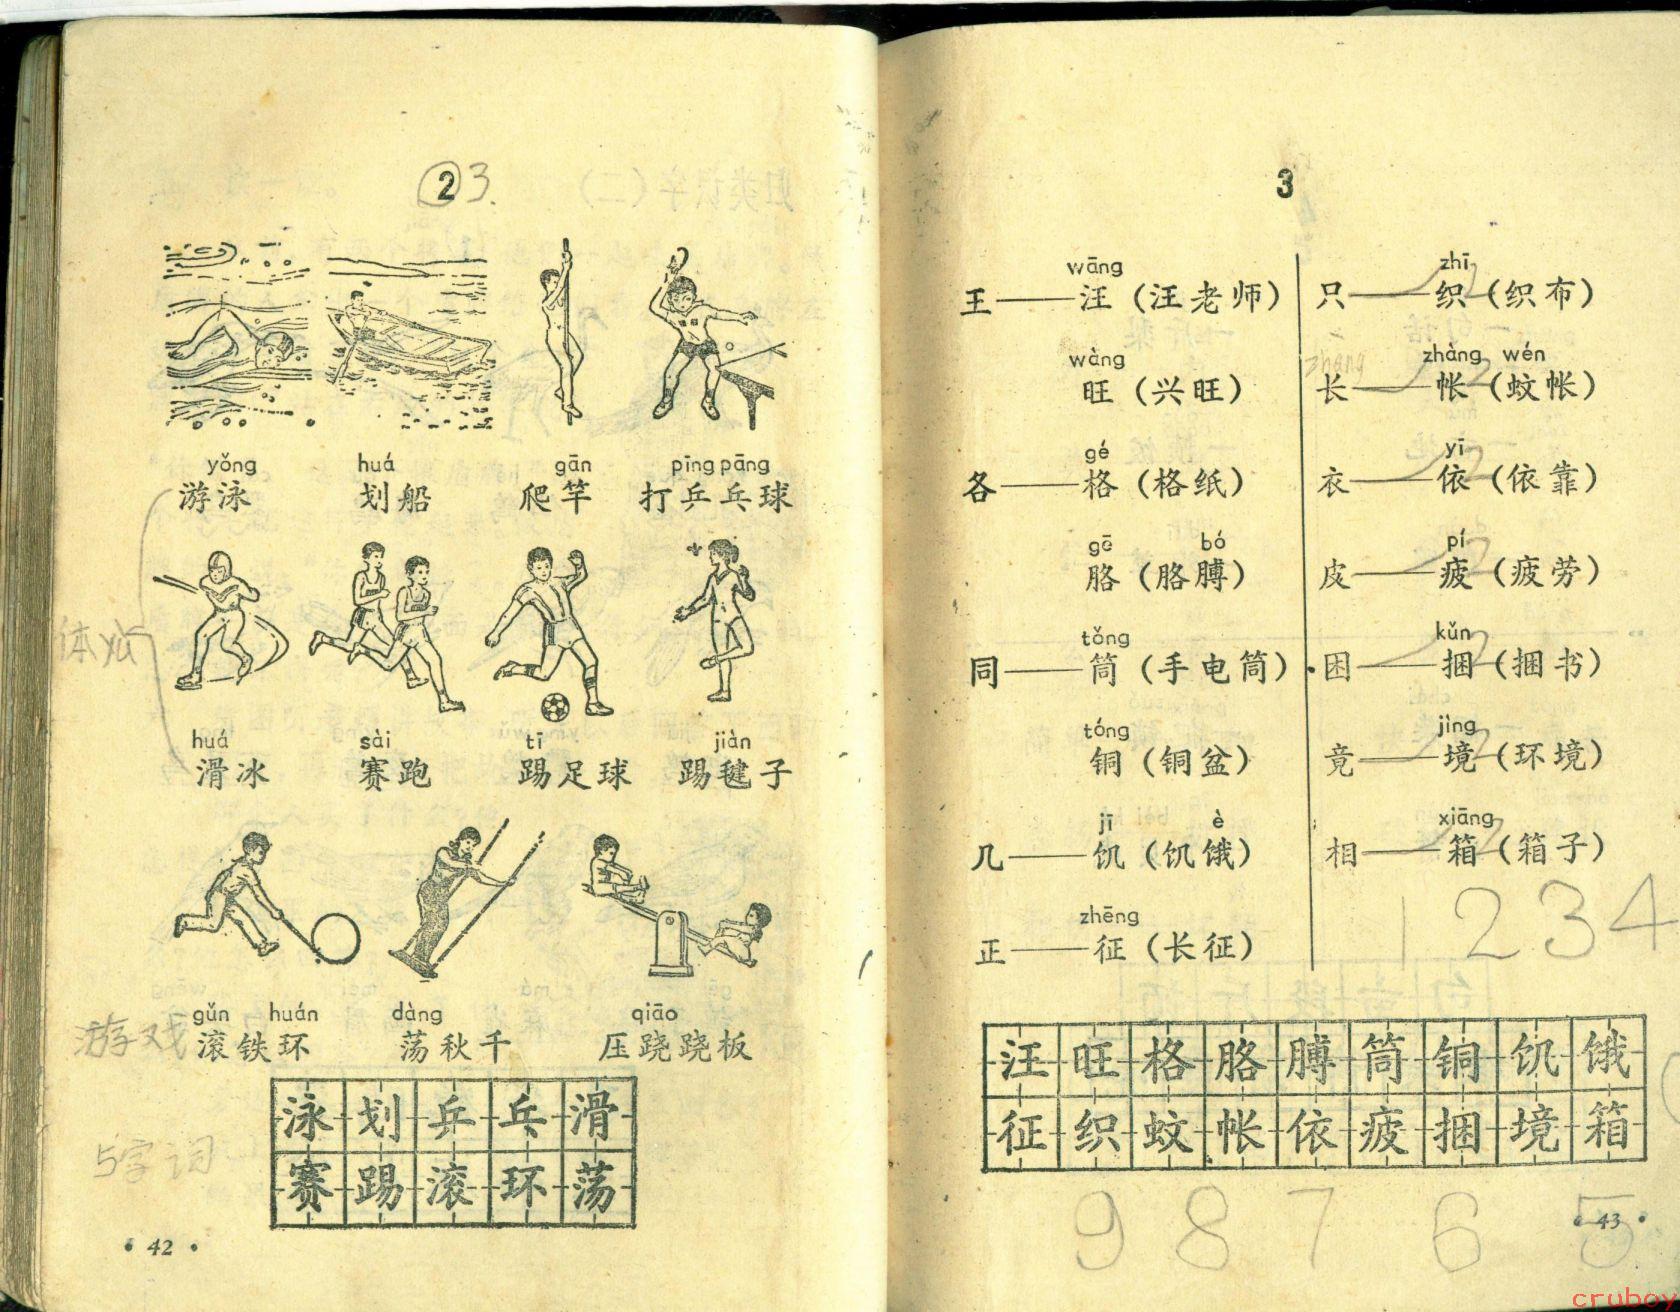 2 3.
yǒng huá gān pīng pāng
游泳 划船 爬竿 打乒乓球
huá sài tī jiàn
滑冰 赛跑 踢足球 踢毽子
gǔn huán dàng qiāo
游戏 滚铁环 荡秋千 压跷跷板
泳 划 乒 乓 滑
赛 踢 滚 环 荡
5字词
• 42 •
3
wāng
王——汪（汪老师）
wàng
旺（兴旺）
gé
各——格（格纸）
gē bó
胳（胳膊）
tǒng
同——筒（手电筒）
tóng
铜（铜盆）
jī è
几——饥（饥饿）
zhēng
正——征（长征）
zhī
只——织（织布）
zhǎng zhàng wén
长——帐（蚊帐）
yī
衣——依（依靠）
pí
皮——疲（疲劳）
kǔn
困——捆（捆书）
jìng
竟——境（环境）
xiāng
相——箱（箱子）
1 2 3 4
汪 旺 格 胳 膊 筒 铜 饥 饿
征 织 蚊 帐 依 疲 捆 境 箱
9 8 7 6 5
• 43 •
crubox